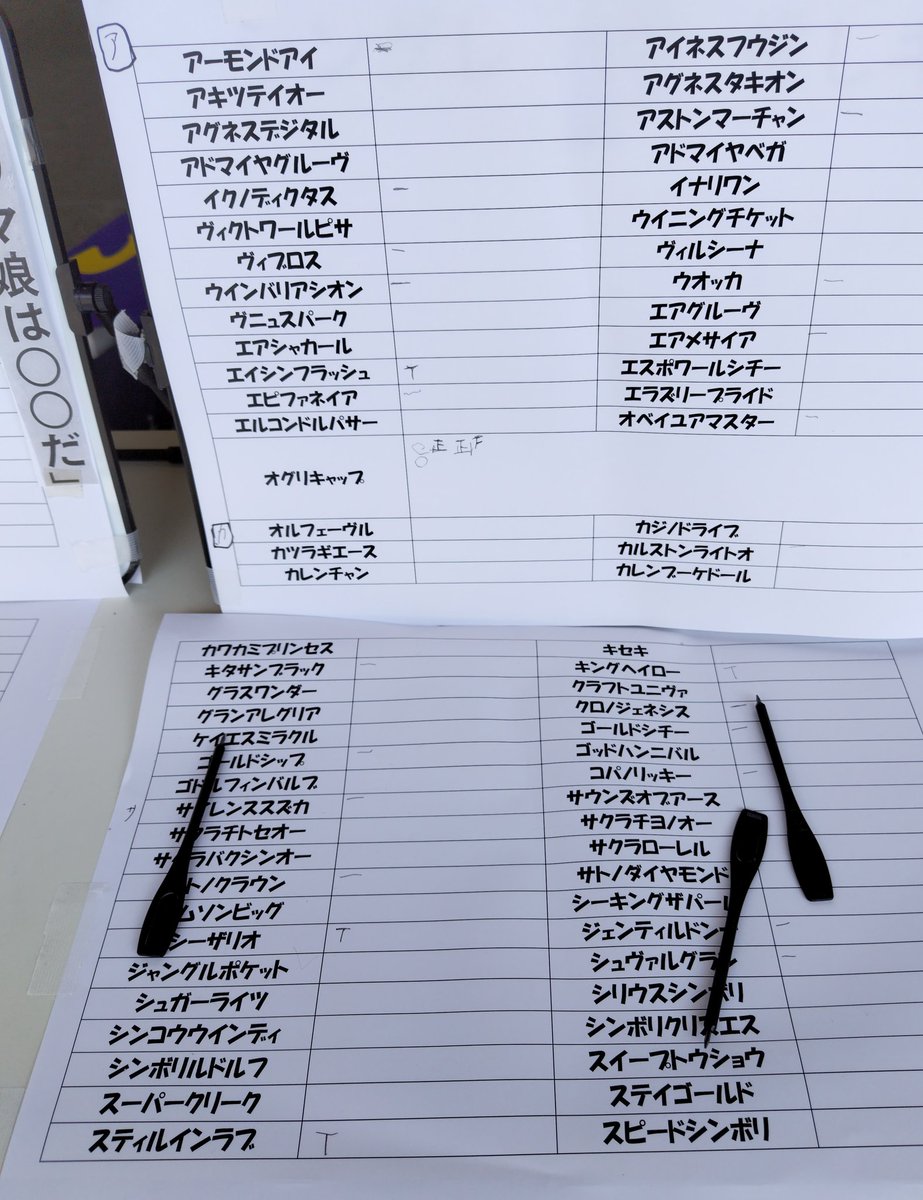 マ娘は○○だ」
ア
アーモンドアイ アイネスフウジン 一
アキツテイオー アグネスタキオン
アグネスデジタル アストンマーチャン 一
アドマイヤグルーヴ アドマイヤベガ
イクノディクタス 一 イナリワン
ヴィクトワールピサ ウイニングチケット
ヴィブロス 一 ヴィルシーナ
ウインバリアシオン 一 ウオッカ 一
ヴニュスパーク エアグルーヴ
エアシャカール エアメサイア 一
エイシンフラッシュ T エスポワールシチー
エピファネイア 一 エラズリープライド
エルコンドルパサー オベイユアマスター 一
オグリキャップ 正 正
カ
オルフェーヴル カジノドライブ
カツラギエース カルストンライトオ
カレンチャン カレンブーケドール
カワカミプリンセス キセキ
キタサンブラック 一 キングヘイロー T
グラスワンダー クラフトユニヴァ
グランアレグリア クロノジェネシス 一
ケイエスミラクル ゴールドシチー 一
ゴールドシップ 一 ゴッドハンニバル
ゴドルフィンバルブ コパノリッキー 一
サ
サイレンススズカ 一 サウンズオブアース
サクラチトセオー サクラチヨノオー
サクラバクシンオー サクラローレル
トノクラウン 一 サトノダイヤモンド
ムソンビッグ シーキングザパール
シーザリオ T ジェンティルドンナ 一
ジャングルポケット シュヴァルグラン 一
シュガーライツ シリウスシンボリ
シンコウウインディ シンボリクリスエス
シンボリルドルフ スイープトウショウ
スーパークリーク ステイゴールド
スティルインラブ T スピードシンボリ